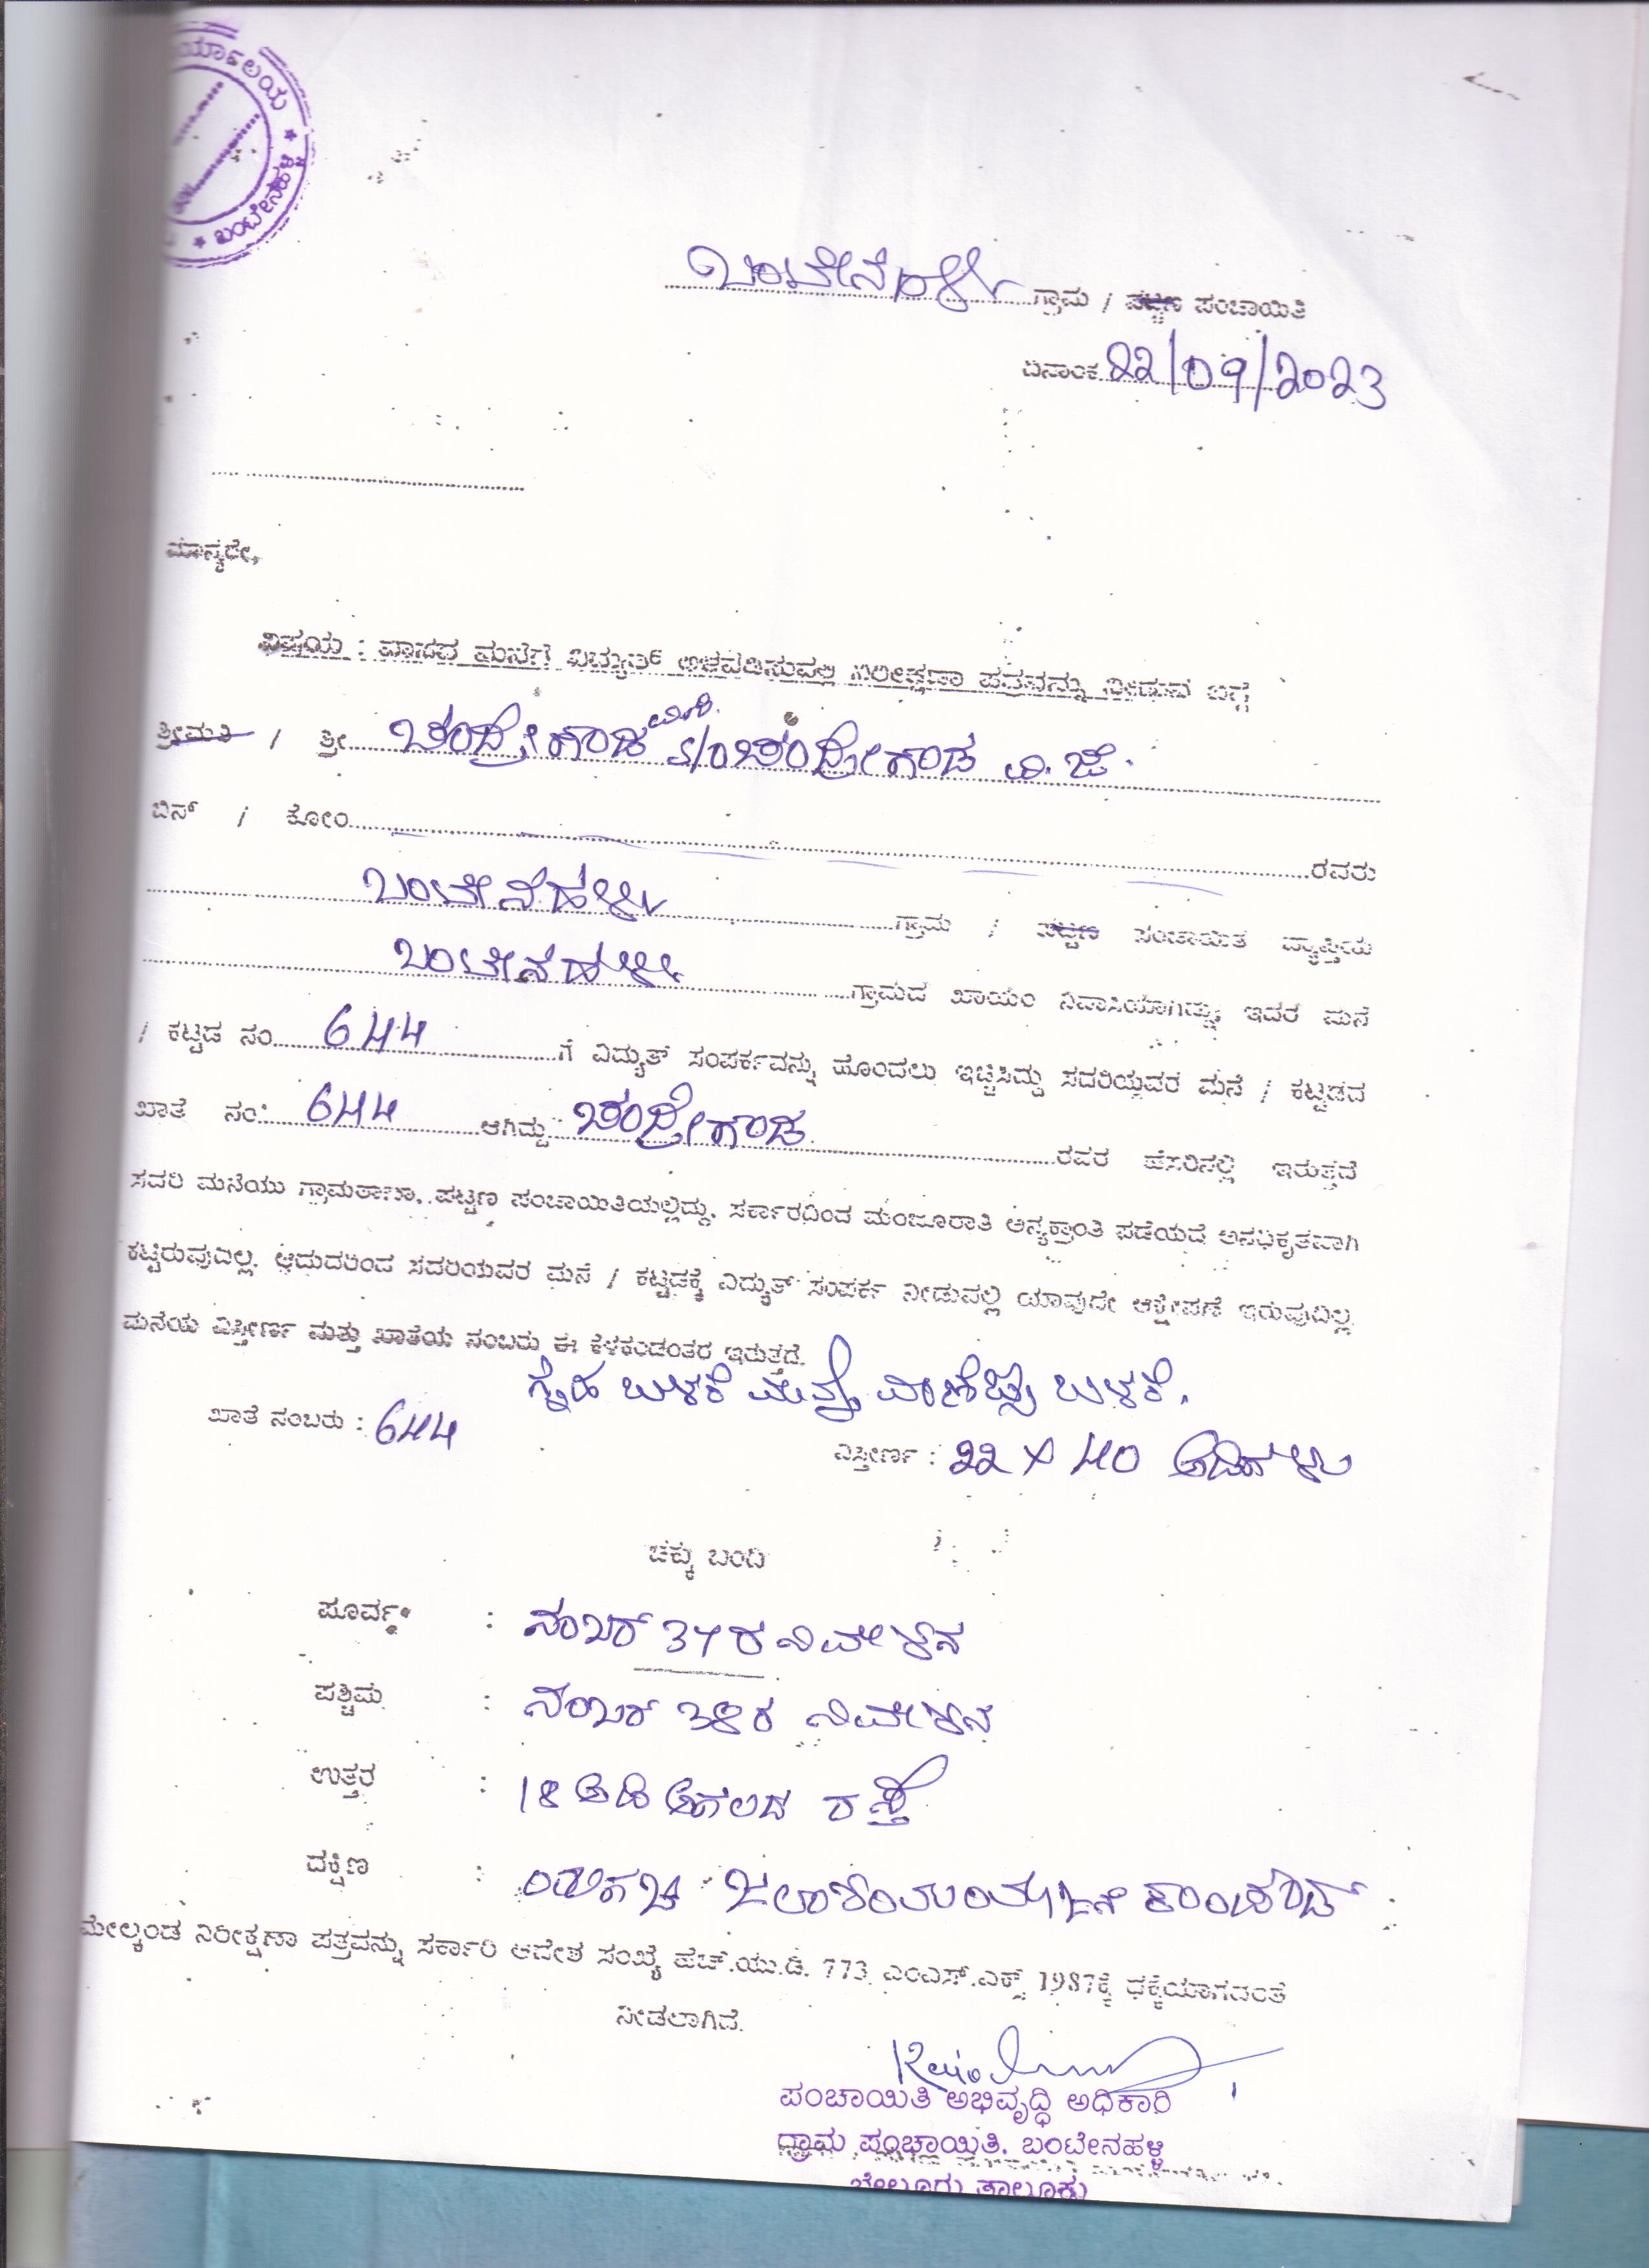 ರ್ಯಾಲಯ * ಬಂಟೇನಹಳ್ಳಿ *
ಬಂಟೇನಹಳ್ಳಿ ಗ್ರಾಮ / ಪಟ್ಟಣ ಪಂಚಾಯಿತಿ
ದಿನಾಂಕ 22/09/2023
ಮಾನ್ಯರೇ,
ವಿಷಯ : ವಾಸದ ಮನೆಗೆ ವಿದ್ಯುತ್ ಅಳವಡಿಸುವಲ್ಲಿ ನಿರೀಕ್ಷಣಾ ಪತ್ರವನ್ನು ನೀಡುವ ಬಗ್ಗೆ
ಶ್ರೀಮತಿ / ಶ್ರೀ ಚಂದ್ರೇಗೌಡ S/o ಚಂದ್ರೇಗೌಡ ವಿ.ಜೆ.
ಬಿನ್ / ಕೋಂ ರವರು
ಬಂಟೇನಹಳ್ಳಿ ಗ್ರಾಮ / ಪಟ್ಟಣ ಪಂಚಾಯಿತ ವ್ಯಾಪ್ತಿಯ
ಬಂಟೇನಹಳ್ಳಿ ಗ್ರಾಮದ ಖಾಯಂ ನಿವಾಸಿಯಾಗಿದ್ದು, ಇವರ ಮನೆ
/ ಕಟ್ಟಡ ನಂ 644 ಗೆ ವಿದ್ಯುತ್ ಸಂಪರ್ಕವನ್ನು ಹೊಂದಲು ಇಚ್ಚಿಸಿದ್ದು ಸದರಿಯವರ ಮನೆ / ಕಟ್ಟಡದ
ಖಾತೆ ನಂ: 644 ಆಗಿದ್ದು ಚಂದ್ರೇಗೌಡ ರವರ ಹೆಸರಿನಲ್ಲಿ ಇರುತ್ತದೆ
ಸದರಿ ಮನೆಯು ಗ್ರಾಮಠಾಣಾ, ಪಟ್ಟಣ ಪಂಚಾಯಿತಿಯಲ್ಲಿದ್ದು, ಸರ್ಕಾರದಿಂದ ಮಂಜೂರಾತಿ ಅನ್ಯಕ್ರಾಂತಿ ಪಡೆಯದೆ ಅನಧಿಕೃತವಾಗಿ
ಕಟ್ಟಿರುವುದಿಲ್ಲ. ಆದುದರಿಂದ ಸದರಿಯವರ ಮನೆ / ಕಟ್ಟಡಕ್ಕೆ ವಿದ್ಯುತ್ ಸಂಪರ್ಕ ನೀಡುವಲ್ಲಿ ಯಾವುದೇ ಆಕ್ಷೇಪಣೆ ಇರುವುದಿಲ್ಲ
ಮನೆಯ ವಿಸ್ತೀರ್ಣ ಮತ್ತು ಖಾತೆಯ ನಂಬರು ಈ ಕೆಳಕಂಡಂತರ ಇರುತ್ತದೆ.
ಗೃಹ ಬಳಕೆ ಮತ್ತು ವಾಣಿಜ್ಯ ಬಳಕೆ.
ಖಾತೆ ನಂಬರು : 644 ವಿಸ್ತೀರ್ಣ : 22 X 40 ಅಡಿಗಳು
ಚಕ್ಕು ಬಂದಿ
ಪೂರ್ವ : ನಂಬರ್ 37 ರ ನಿವೇಶನ
ಪಶ್ಚಿಮ : ನಂಬರ್ 38 ರ ನಿವೇಶನ
ಉತ್ತರ : 18 ಅಡಿ ಅಗಲದ ರಸ್ತೆ
ದಕ್ಷಿಣ : ಯಗಚಿ ಕಾಂಪೌಂಡ್
ಮೇಲ್ಕಂಡ ನಿರೀಕ್ಷಣಾ ಪತ್ರವನ್ನು ಸರ್ಕಾರಿ ಆದೇಶ ಸಂಖ್ಯೆ ಹೆಚ್.ಯು.ಡಿ. 773 ಎಂಎಸ್.ಎಕ್ಸ್ 1987ಕ್ಕೆ ಧಕ್ಕೆಯಾಗದಂತೆ
ನೀಡಲಾಗಿದೆ.
ಪಂಚಾಯಿತಿ ಅಭಿವೃದ್ಧಿ ಅಧಿಕಾರಿ
ಗ್ರಾಮ ಪಂಚಾಯಿತಿ, ಬಂಟೇನಹಳ್ಳಿ
ಬೇಲೂರು ತಾಲ್ಲೂಕು